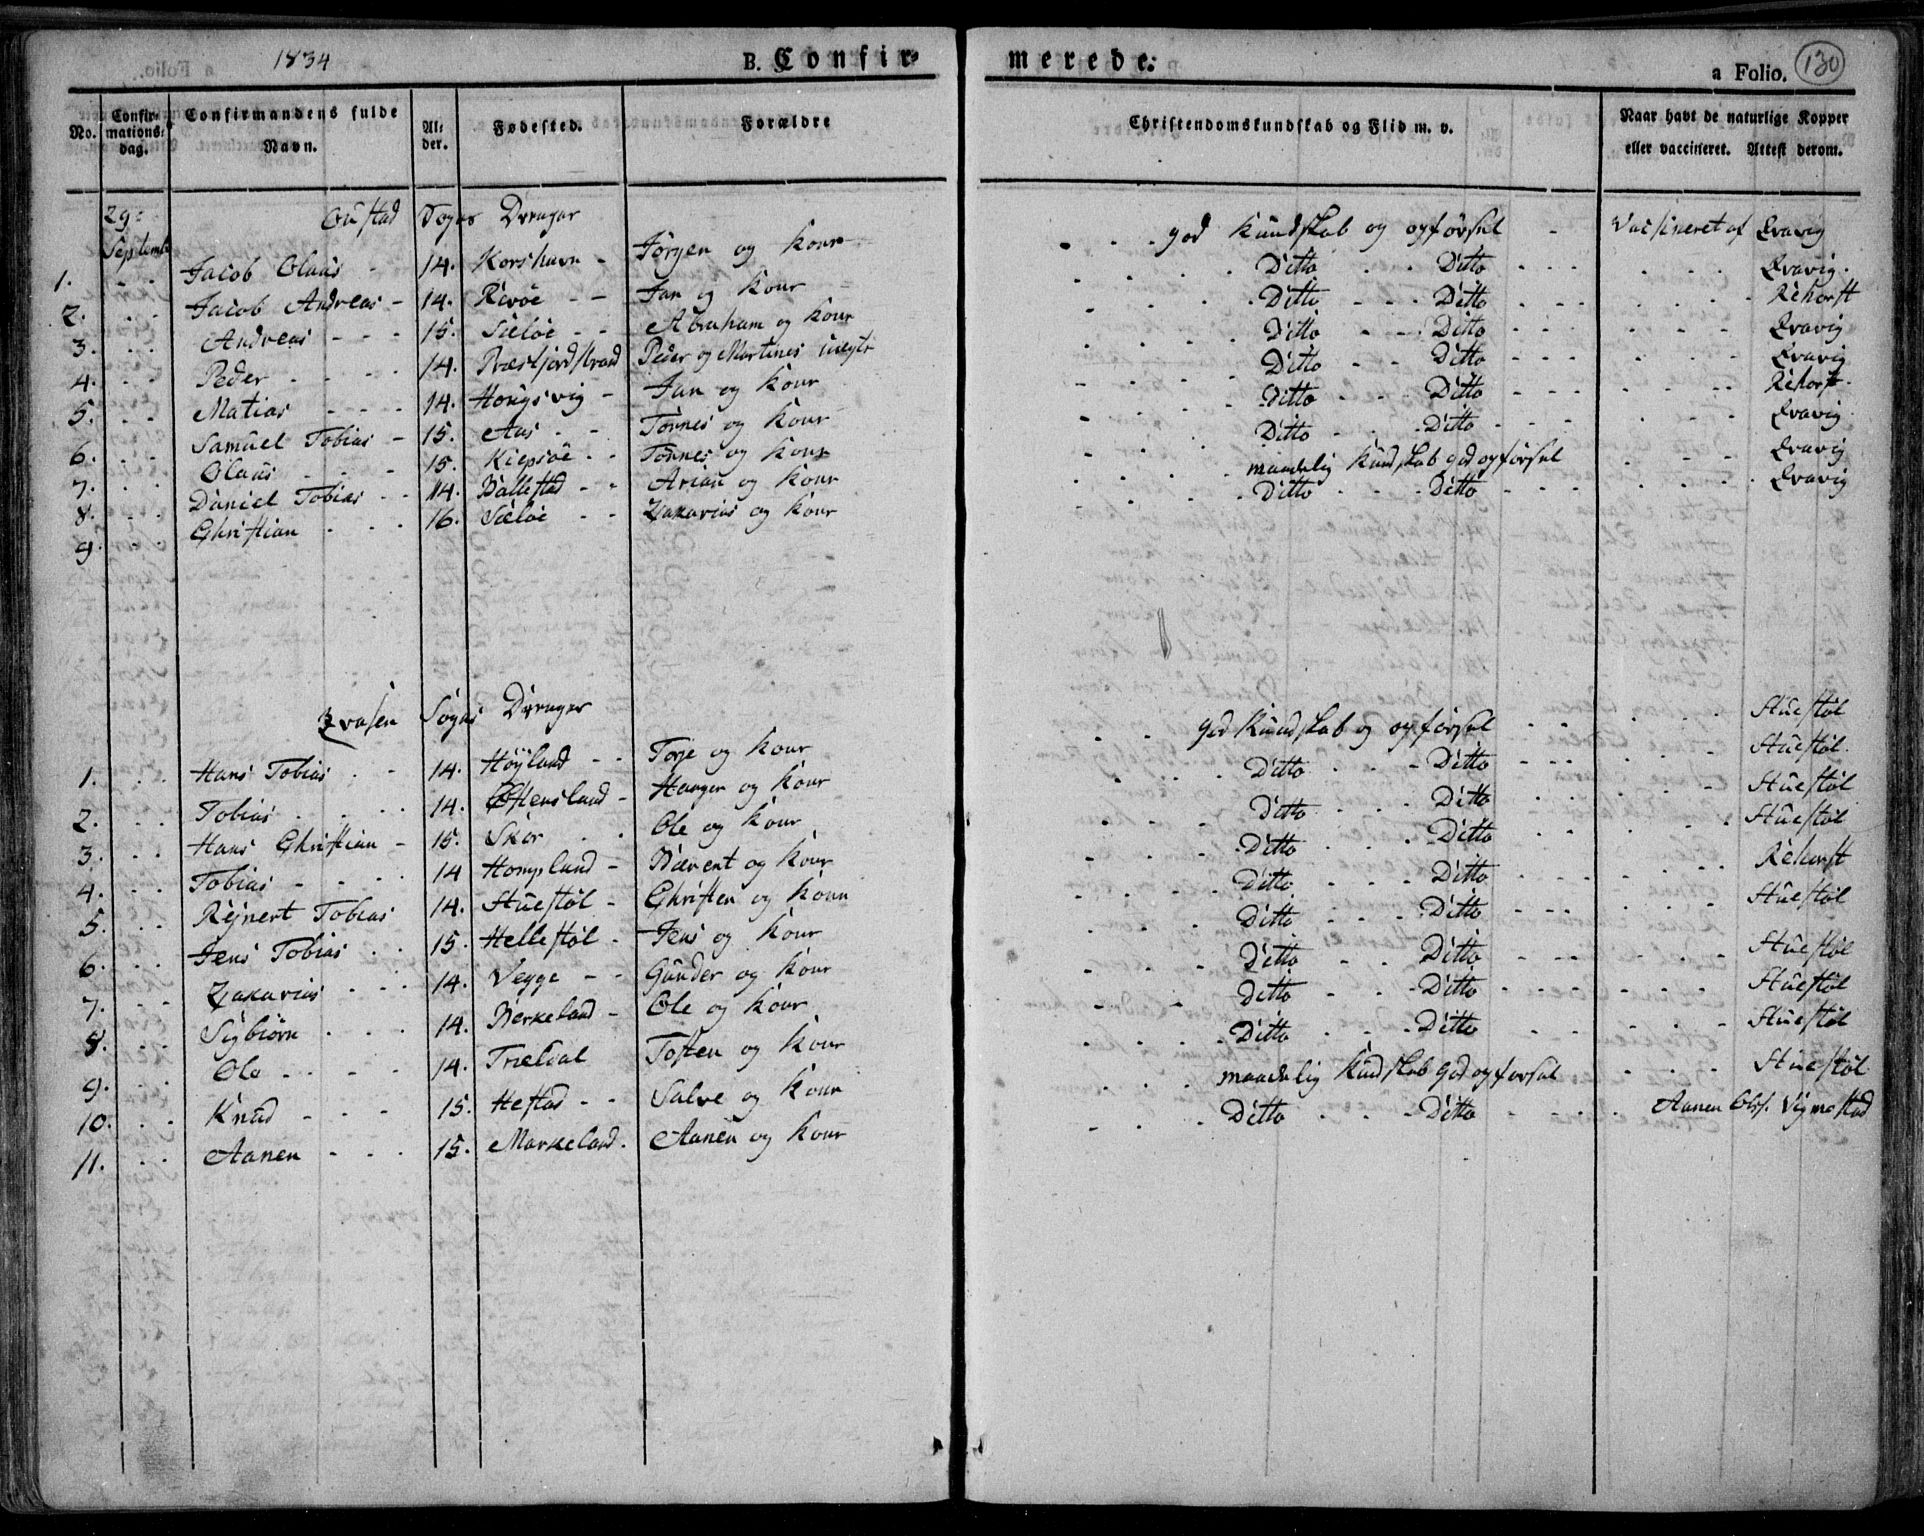 1834
B. Confir=
merede:
a Folio. 130
No.
Confir=
mations=
dag.
Confirmandens fulde
Navn.
Al=
der.
Fødested.
Forældre
Christendomskundskab og Flid m. v.
Naar havt de naturlige Kopper
eller vaccineret. Attest derom.
29=
Septemb
Sogns Drenger
1. Jacob Olaus - 14. Korshavn - Jørgen og konr god kundskab og opførsel - Vacsineret af Qvavig
2. Jacob Andreas - 14. Rivøe - - Jan og konr Ditto Ditto Qvavig.
3. Andreas - - - 15. Sæløe - - Abraham og konr Ditto Ditto Rehorst
4. Peder - - - - 14. Præstfjordstrand Peder og Martines uegte Ditto Ditto Qvavig
5. Matias - - - 14. Høngsvig - Jan og konr Ditto Ditto Qvavig
6. Samuel Tobias - 15. Aas - - Tørnes og konr Ditto Ditto Rehorst.
7. Olaus - - - 15. Kiepsøe - - Tønnes og konr Ditto Ditto Qvavig
8. Daniel Tobias - - 14. Ballestad - - Arian og konr maadelig kundskab god opførsel Qvavig
9. Christian - - - 16. Sæløe - - Zakarius og konr Ditto Ditto Qvavig
Qvasen Sogns Drenger
1. Hans Tobias - - 14. Høyland - - Torje og konr god kundskab og opførsel Stuestøl
2. Tobias - - 14. Østensland - Haagen og konr Ditto Ditto Stuestøl.
3. Hans Christian - 15. Skor Ole og konr Ditto Ditto Stuestøl
4. Tobias - - - - 14 Hompland - Bærent og konr Ditto Ditto Stuestøl
5. Rejnert Tobias 14. Stuestøl - Christen og konr Ditto Ditto Rehorst
6. Jens Tobias 15. Hellestøl - Jens og konr Ditto Ditto Stuestøl
7. Zakarias - - - 14. Vegge - - Gunder og konr Ditto Ditto Stuestøl
8. Sigbiørn - - - 14. Berkeland - Ole og konr Ditto Ditto Stuestøl
9. Ole - - - - 14. Trældal Tosten og konr Ditto Ditto Stuestøl
10. Knud - - - 15. Hestad - - Salve og konr maadelig kundskab god opførsel Stuestøl
11. Aanen - - - 15. Markeland. Aanen og konr Ditto Ditto Aanen Vigmostad